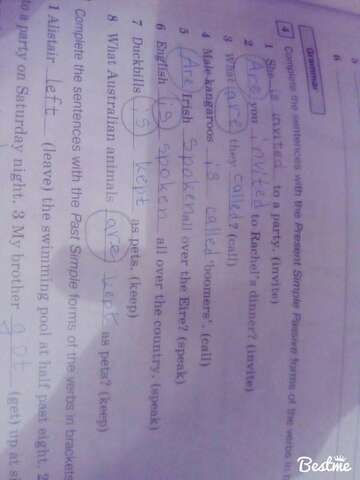 5
6
Grammar
4 Complete the sentences with the Present Simple Passive forms of the verbs in
1 She is invited to a party. (invite)
2 Are you invited to Rachel's dinner? (invite)
3 What are they called? (call)
4 Male kangaroos is called 'boomers'. (call)
5 Are Irish spoken all over the Eire? (speak)
6 English is spoken all over the country. (speak)
7 Duckbills is kept as pets. (keep)
8 What Australian animals are kept as pets? (keep)
Complete the sentences with the Past Simple forms of the verbs in brackets
1 Alistair left (leave) the swimming pool at half past eight. 2
to a party on Saturday night. 3 My brother got (get) up at
Bestme